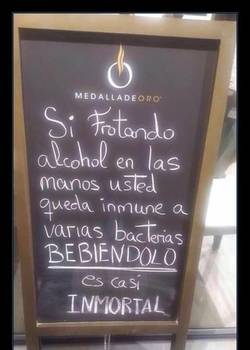 MEDALLADEORO
Si Frotando
alcohol en las
manos usted
queda inmune a
varias bacterias
BEBIENDOLO
es casi
INMORTAL